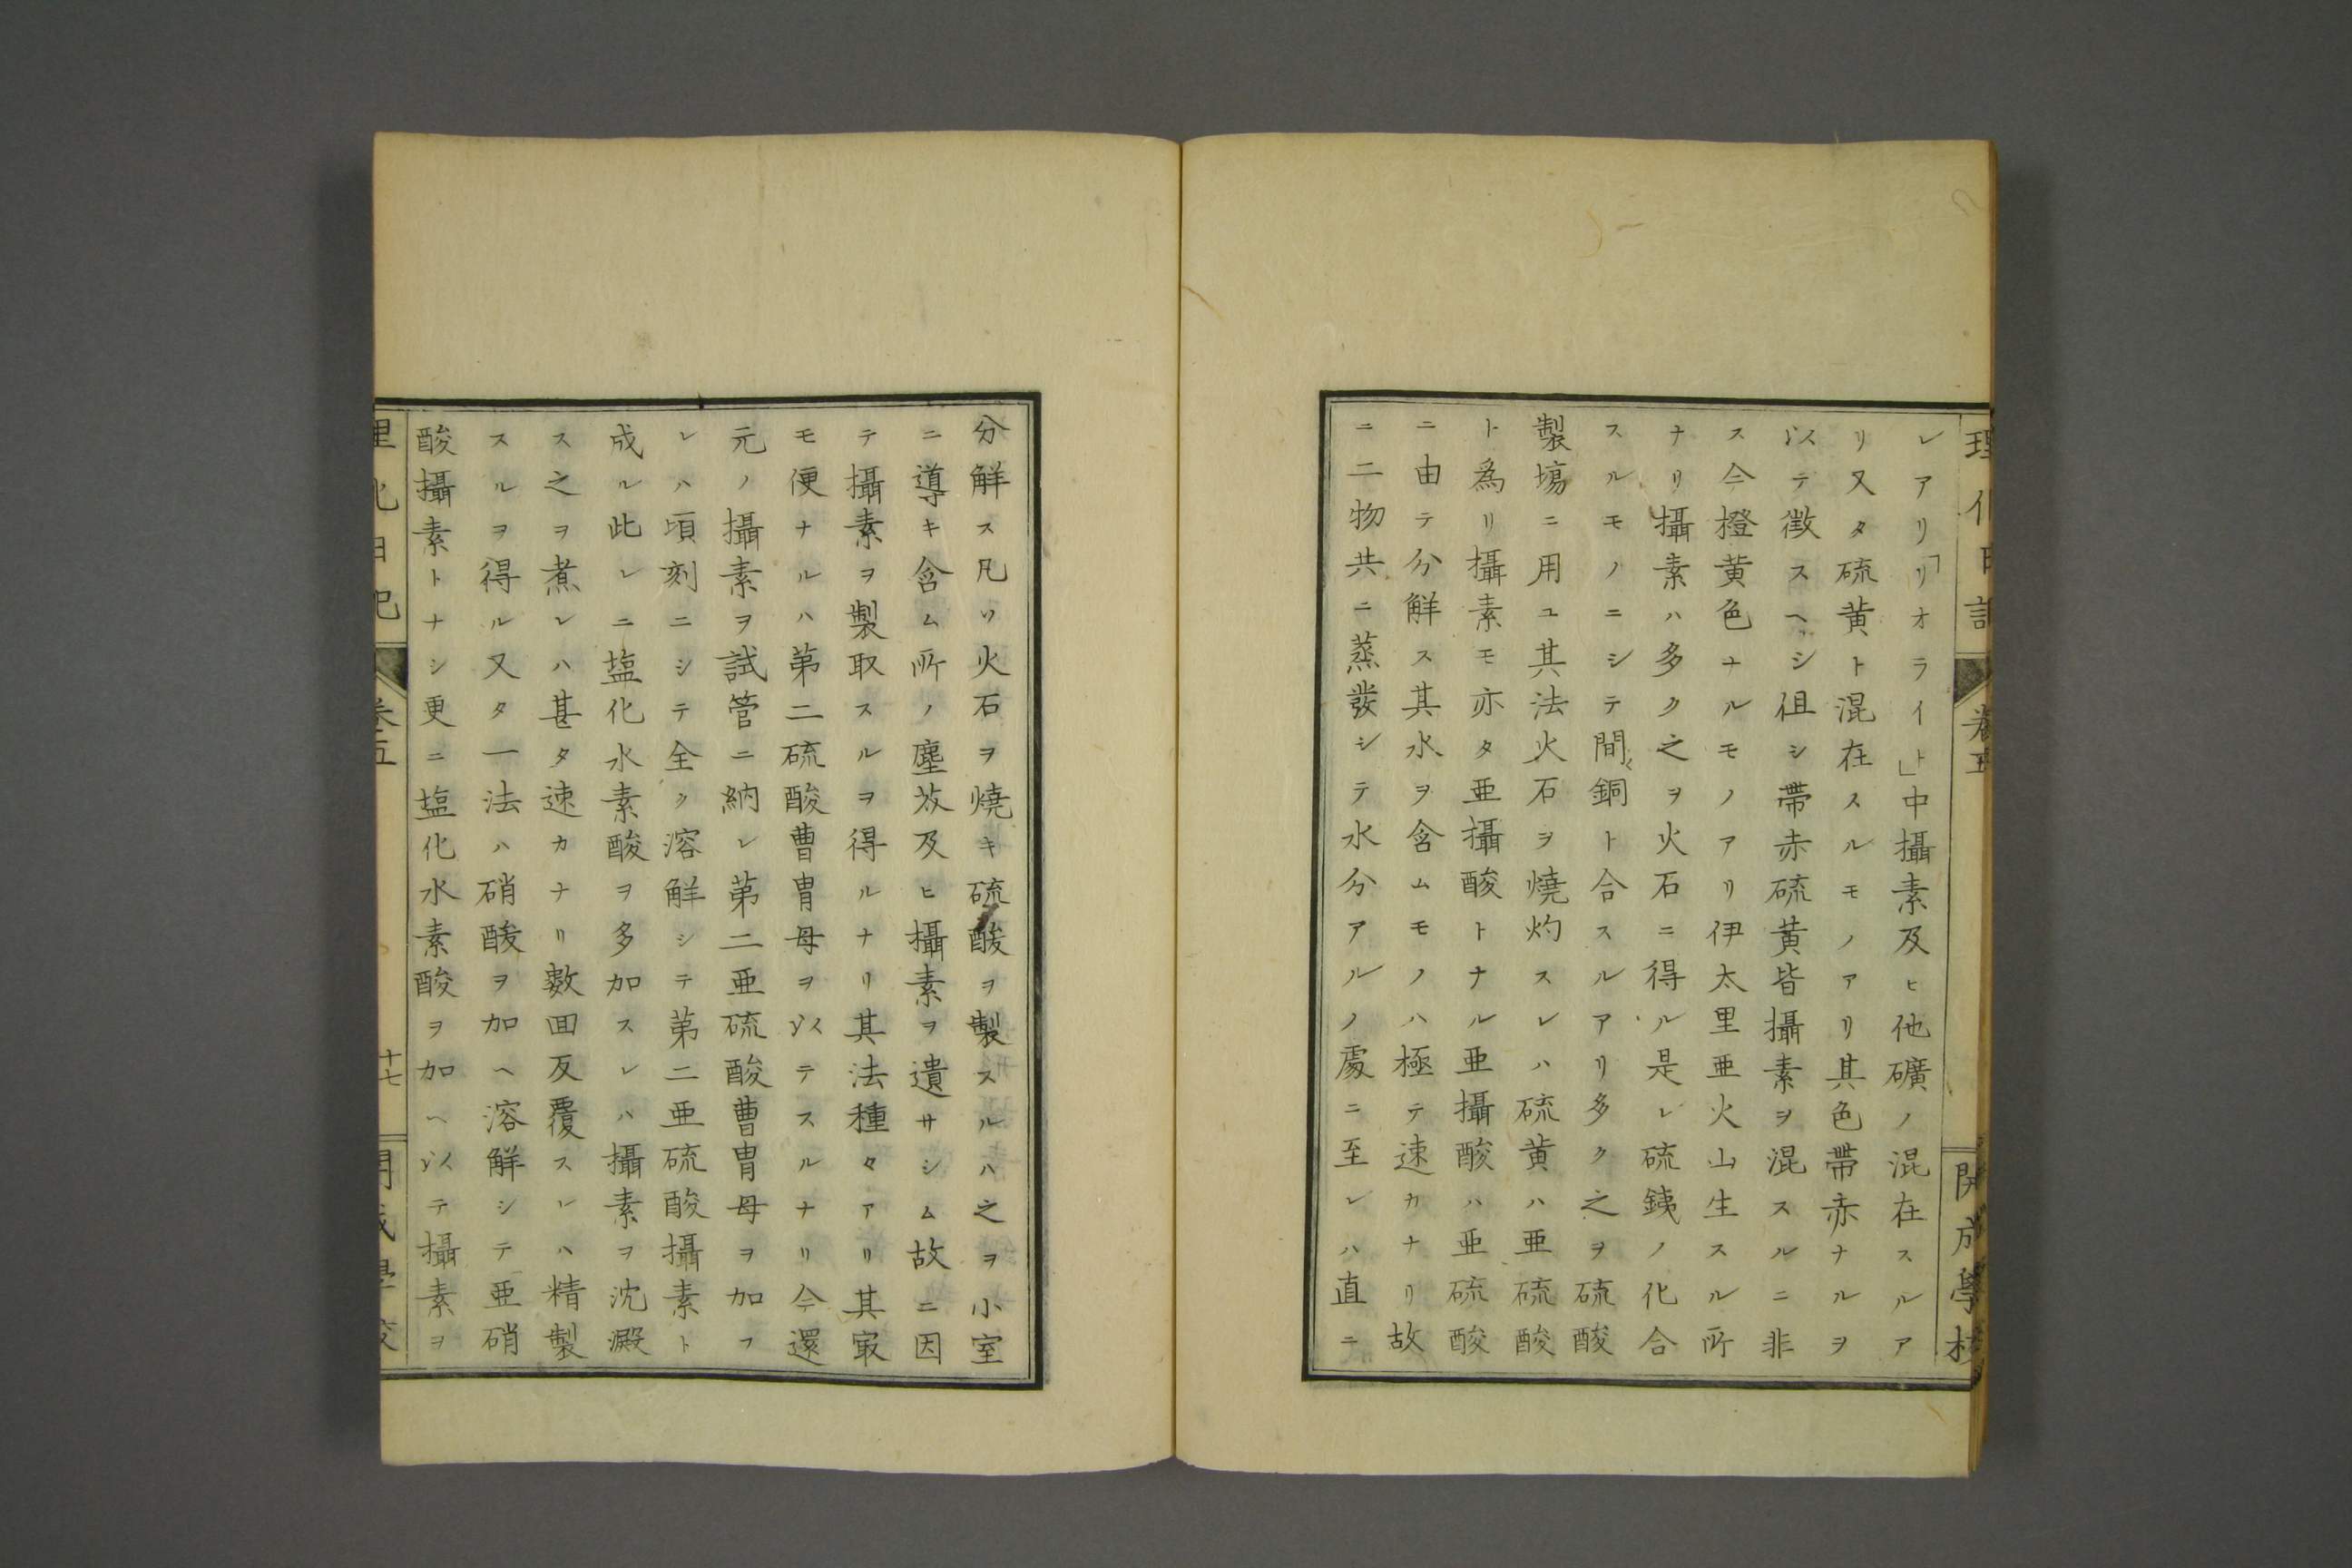 理化日記
卷五
開成學校
レアリ「リオライト」中攝素及ヒ他礦ノ混在スルア
リ又タ硫黄ト混在スルモノアリ其色帶赤ナルヲ
以テ徴スヘシ但シ帶赤硫黄皆攝素ヲ混スルニ非
ス今橙黄色ナルモノアリ伊太里亜火山生スル所
ナリ攝素ハ多ク之ヲ火石ニ得ル是レ硫銕ノ化合
スルモノニシテ間〻銅ト合スルアリ多ク之ヲ硫酸
製塲ニ用ユ其法火石ヲ燒灼スレハ硫黄ハ亜硫酸
ト爲リ攝素モ亦タ亜攝酸トナル亜攝酸ハ亜硫酸
ニ由テ分觧ス其水ヲ含ムモノハ極テ速カナリ故
ニ二物共ニ蒸發シテ水分アルノ處ニ至レハ直ニ
分觧ス凡ソ火石ヲ燒キ硫酸ヲ製スルハ之ヲ小室
ニ導キ含ム所ノ塵茨及ヒ攝素ヲ遺サシム故ニ因
テ攝素ヲ製取スルヲ得ルナリ其法種々アリ其㝡
モ便ナルハ第二硫酸曹冑母ヲ以テスルナリ今還
元ノ攝素ヲ試管ニ納レ第二亜硫酸曹冑母ヲ加フ
レハ頃刻ニシテ全ク溶觧シテ第二亜硫酸攝素ト
成ル此レニ塩化水素酸ヲ多加スレハ攝素ヲ沈澱
ス之ヲ煮レハ甚タ速カナリ數回反覆スレハ精製
スルヲ得ル又タ一法ハ硝酸ヲ加ヘ溶觧シテ亜硝
酸攝素トナシ更ニ塩化水素酸ヲ加ヘ以テ攝素ヲ
理化日記
卷五
十七
開成學校